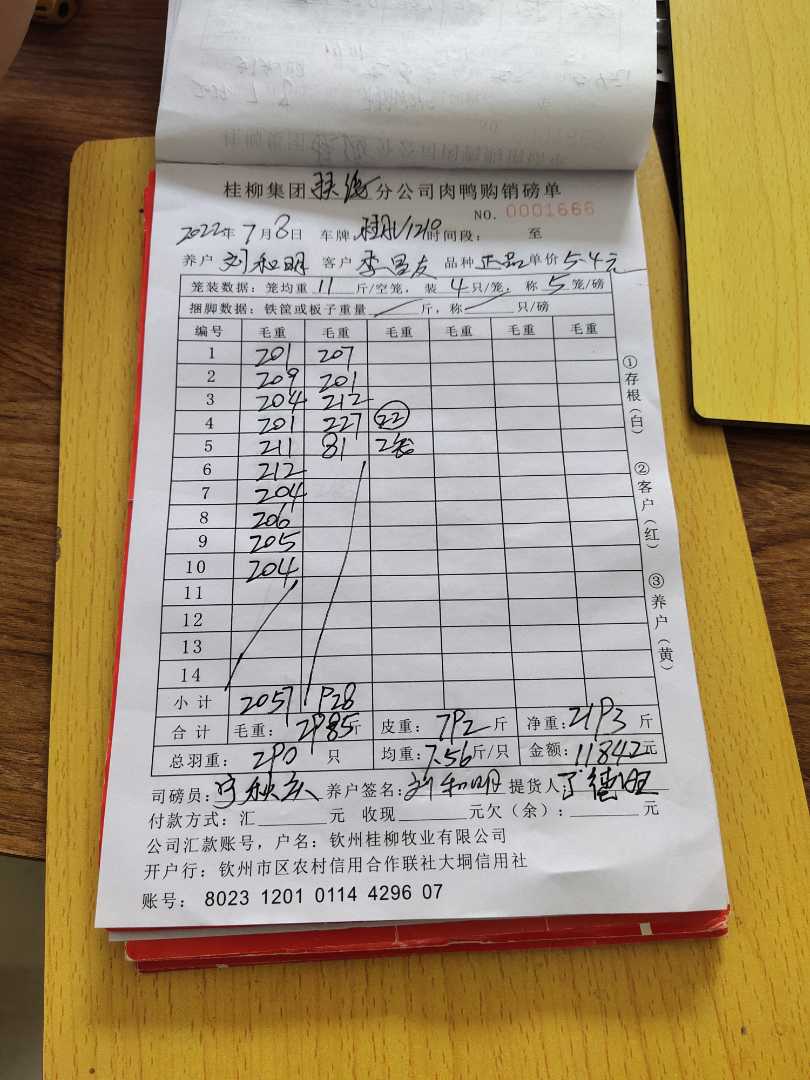 桂柳集团扶绥分公司肉鸭购销磅单
NO. 0001666
2022年7月8日 车牌: 时间段: 至
养户 刘和明 客户 李昌友 品种 正品 单价 5.4元
笼装数据: 笼均重 11 斤/空笼, 装 4 只/笼, 称 5 笼/磅
捆脚数据: 铁筐或板子重量 / 斤, 称 / 只/磅
编号 毛重 毛重 毛重 毛重 毛重 毛重
1 201 207
2 209 201
3 204 212
4 201 227 22
5 211 81 2笼
6 212
7 204
8 206
9 205
10 204
11
12
13
14
小计 2057 928
合计 毛重: 2985斤 皮重: 792斤 净重: 2193斤
总羽重: 290 只 均重: 7.56斤/只 金额: 11842元
司磅员: 养户签名: 刘和明 提货人
付款方式: 汇 元 收现 元欠(余): 元
公司汇款账号, 户名: 钦州桂柳牧业有限公司
开户行: 钦州市区农村信用合作联社大垌信用社
账号: 8023 1201 0114 4296 07
①存根(白)
②客户(红)
③养户(黄)